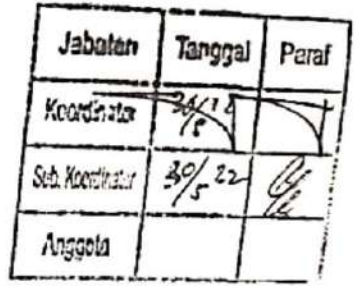 Jabatan Tanggal Paraf
Koordinator
Sub. Koordinator 30/5 22
Anggota